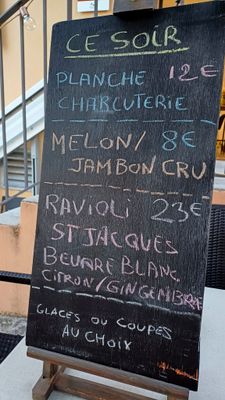 CE SOIR
PLANCHE 12€
CHARCUTERIE
MELON/ 8€
JAMBON CRU
RAVIOLI 23€
ST JACQUES
BEURRE BLANC
CITRON/GINGEMBRE
GLACES OU COUPES
AU CHOIX